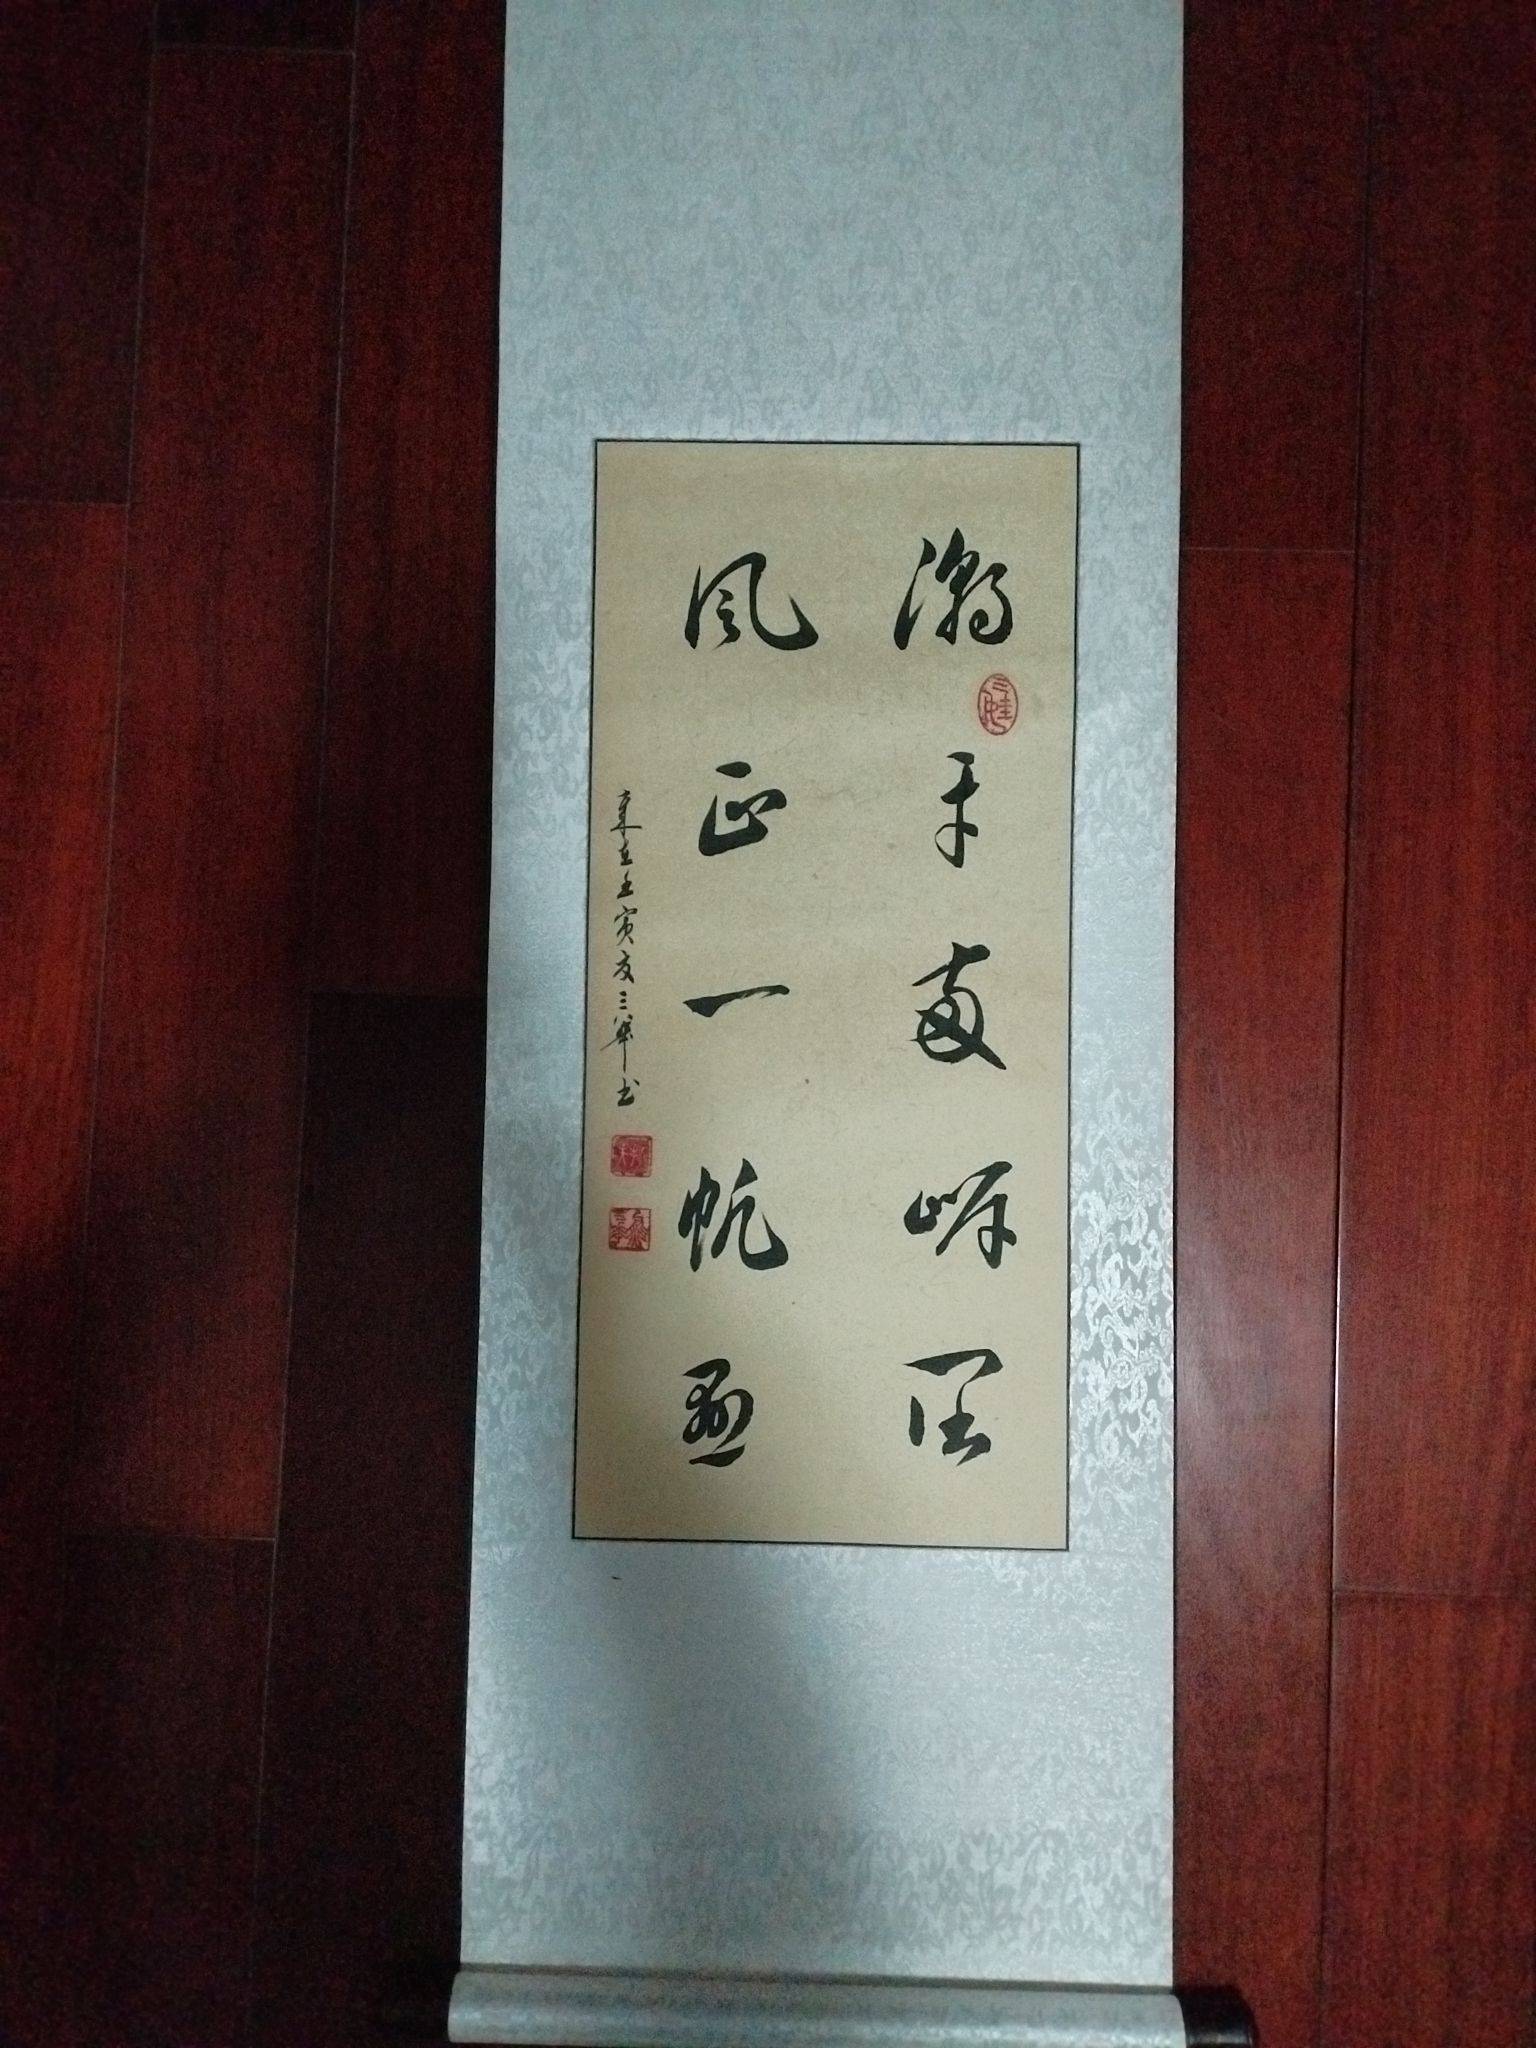 潮平两岸阔
风正一帆悬
岁在壬寅夏三华书